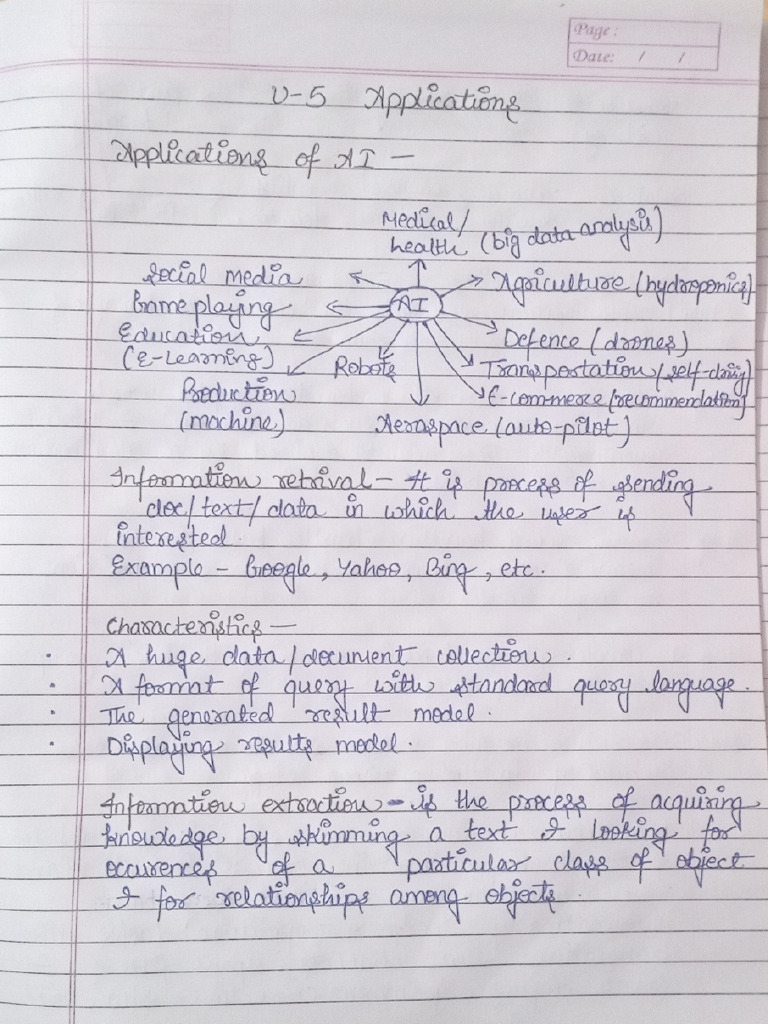 Page:
Date: / /
U-5 Applications
Applications of AI -
Medical/
health (big data analysis)
Social media
Agriculture (hydroponics)
Game playing
AI
Education
(E-Learning)
Defence (drones)
Robots
Transportation/self-driving
Production
(machine)
E-commerce (recommendation)
Aerospace (auto-pilot)
Information retrival - It is process of sending
doc/text/data in which the user is
interested.
Example - Google, Yahoo, Bing, etc.
Characteristics -
• A huge data/document collection.
• A format of query with standard query language.
• The generated result model.
• Displaying results model.
Information extraction - is the process of acquiring
knowledge by skimming a text & looking for
occurences of a particular class of object
& for relationships among objects.